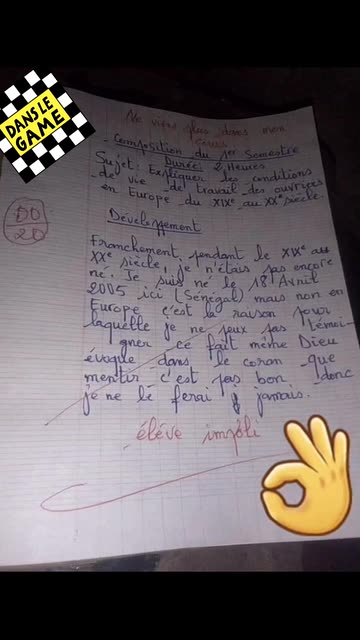 DANS LE
GAME
Ne viens plus dans mon
cours
Composition du 1er Semestre
Durée: 2 Heures
Sujet: Expliquer les conditions
de vie de travail des ouvriers
en Europe du XIXe au XXe siècle.
00
20
Developpement
Franchement, pendant le XIXe au
XXe siècle, je n'étais pas encore
né. Je suis né le 18 Avril
2005 ici (Sénégal) mais non en
Europe c'est la raison pour
laquelle je ne peux pas témoi-
gner ce fait même Dieu
évoque dans le coran que
mentir c'est pas bon, donc
je ne le ferai jamais.
éléve impoli